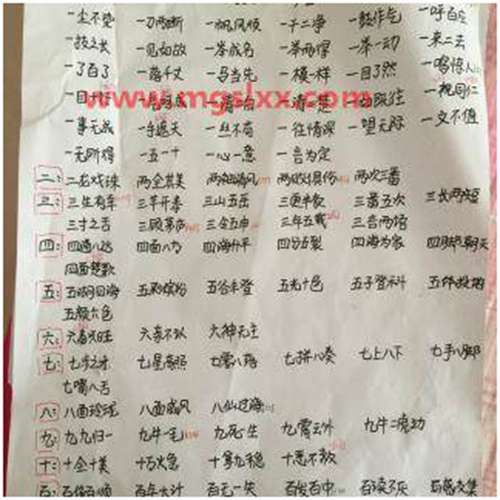 一尘不染 一刀两断 一帆风顺 一干二净 一鼓作气 一呼百应
一技之长 一见如故 一举成名 一举两得 一举一动 一来二去
一了百了 一落千丈 一马当先 一模一样 一目了然 一鸣惊人
www.mgslxx.com
一视同仁
一事无成 一手遮天 一丝不苟 一往情深 一望无际 一文不值
一无所得 一五一十 一心一意 一言为定
二：二龙戏珠 两全其美 两袖清风 两败俱伤 两次三番
三：三生有幸 三平开泰 三山五岳 三更半夜 三番五次 三长两短
三寸之舌 三顾茅庐 三令五申 三年五载 三言两语
四：四通八达 四面八方 四海升平 四分五裂 四海为家 四脚朝天
四面楚歌
五：五湖四海 五彩缤纷 五谷丰登 五光十色 五子登科 五体投地
五颜六色
六：六畜兴旺 六亲不认 六神无主
七：七步之才 七星高照 七零八落 七拼八凑 七上八下 七手八脚
七嘴八舌
八：八面玲珑 八面威风 八仙过海
九：九九归一 九牛一毛 九死一生 九霄云外 九牛二虎功
十：十全十美 十万火急 十拿九稳 十恶不赦
百：百依百顺 百年大计 百发百中